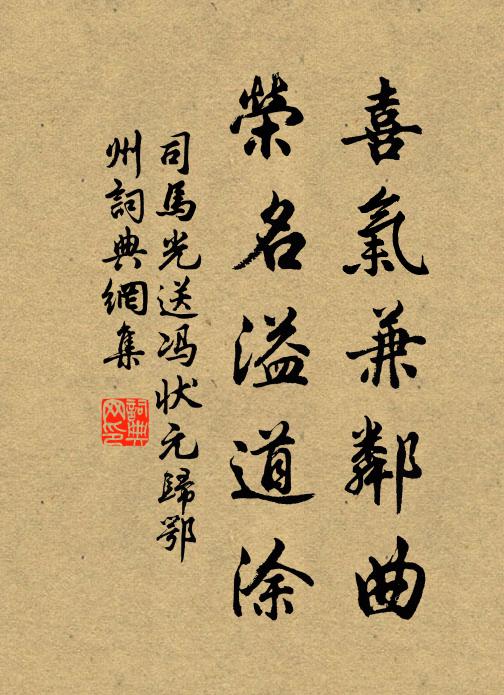 喜氣兼鄰曲
榮名溢道涂
司馬光送冯狀元歸鄂
州詞典網集
詞典网印